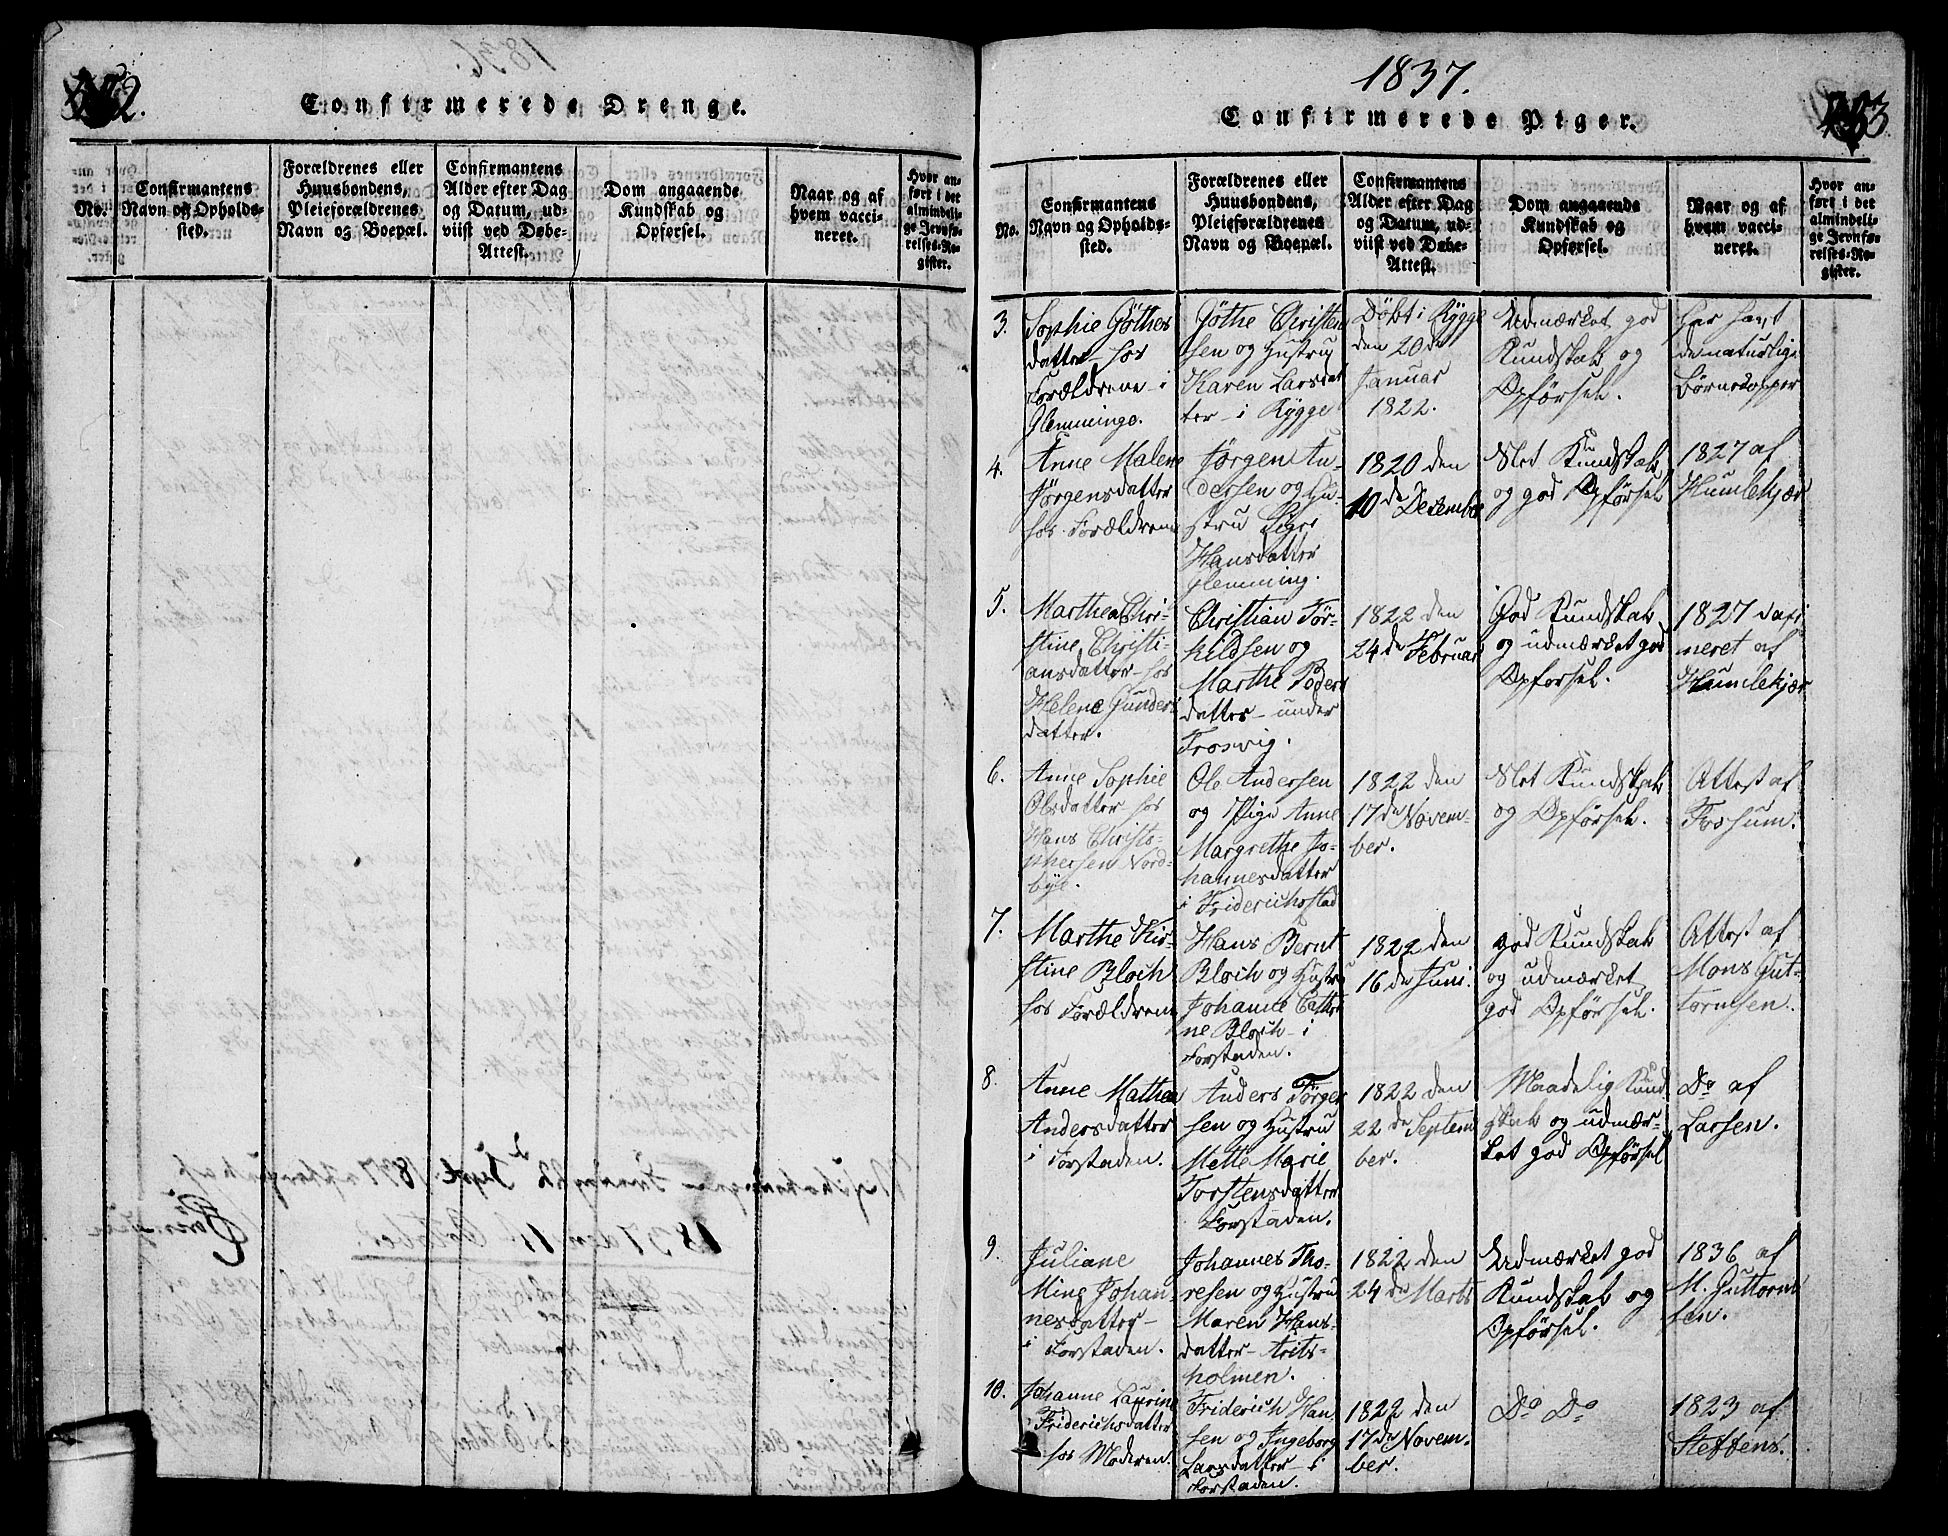 1836.
Confirmerede Drenge.
No.
Confirmantens
Navn og Opholds-
sted.
Forældrenes eller
Huusbondens,
Pleieforældrenes
Navn og Boepæl.
Confirmantens
Alder efter Dag
og Datum, ud-
viist ved Døbe-
Attest.
Dom angaaende
Kundskab og
Opførsel.
Naar og af
hvem vacci-
neret.
Hvor an-
ført i det
almindeli-
ge Jevnfø-
relses-Re-
gister.
1837.
Confirmerede Piger.
No.
Confirmantens
Navn og Opholds-
sted.
Forældrenes eller
Huusbondens,
Pleieforældrenes
Navn og Boepæl.
Confirmantens
Alder efter Dag
og Datum, ud-
viist ved Døbe-
Attest.
Dom angaaende
Kundskab og
Opførsel.
Naar og af
hvem vacci-
neret.
Hvor an-
ført i det
almindeli-
ge Jevnfø-
relses-Re-
gister.
3.
Sophie Göthes
datter hos
Forældrene i
Glemminge.
Göthe Christen
sen og Hustru
Karen Larsdat
ter i Rygge
Döbt i Rygge
den 20de
Januar
1822.
Udmærket god
Kundskab og
Opförsel.
Har havt
de naturlige
Börnekopper
4.
Anne Malene
Jörgensdatter
hos Forældrene
Jörgen An-
dersen og Hu-
stru
Hansdatter
Glemming.
1820 den
10de Desember
Slet Kundskab
og god Opförsel
1827 af
Humlekjær
5.
Marthea Chri-
stine Christi-
ansdatter hos
Helene Gunders
datter.
Christian Tör-
kildsen og
Marthe Peders
datter under
Trosvig.
1822 den
24de Februar
God Kundskab
og udmærket god
Opførsel.
1827 vaxi
neret af
Humlekjær
6.
Anne Sophie
Olsdatter hos
Hans Christo-
phersen Nord-
bye.
Ole Andersen
og Pige Anne
Margrethe Jo-
hannesdatter
i Friderichsstad
1822 den
17de Novem-
ber.
Slet Kundskab
og Opförsel.
Attest af
Fossum.
7.
Marthe Kir-
stine Bloch
hos Forældrene
Hans Bernt
Bloch og Hustru
Johanne Cathri
ne Bloch i
Forstaden.
1822 den
16de Juni.
god Kundskab
og udmærket
god Opförsel.
Attest af
Mons Gut-
tormsen.
8.
Anne Mathea
Andersdatter
i Forstaden.
Anders Törger
sen og Hustru
Mette Marie
Torstensdatter
Forstaden.
1822 den
22de Septem
ber.
Maadelig Kund
skab og udmær-
ket god Opförsel
Do af
Larsen.
9.
Juliane
Mine Johan-
nesdatter
i Forstaden.
Johannes Tho-
resen og Hustru
Maren Hans-
datter
holmen.
1822 den
24de Marts
Udmærket god
Kundskab og
Opförsel.
1836 af
M. Guttorm
sen.
10.
Johanne Laurine
Friderichsdatter
hos Moderen.
Friderich Han
sen og Ingeborg
Larsdatter i
Forstaden.
1822 den
17de Novem-
ber.
Do Do
1823 af
Steffens.